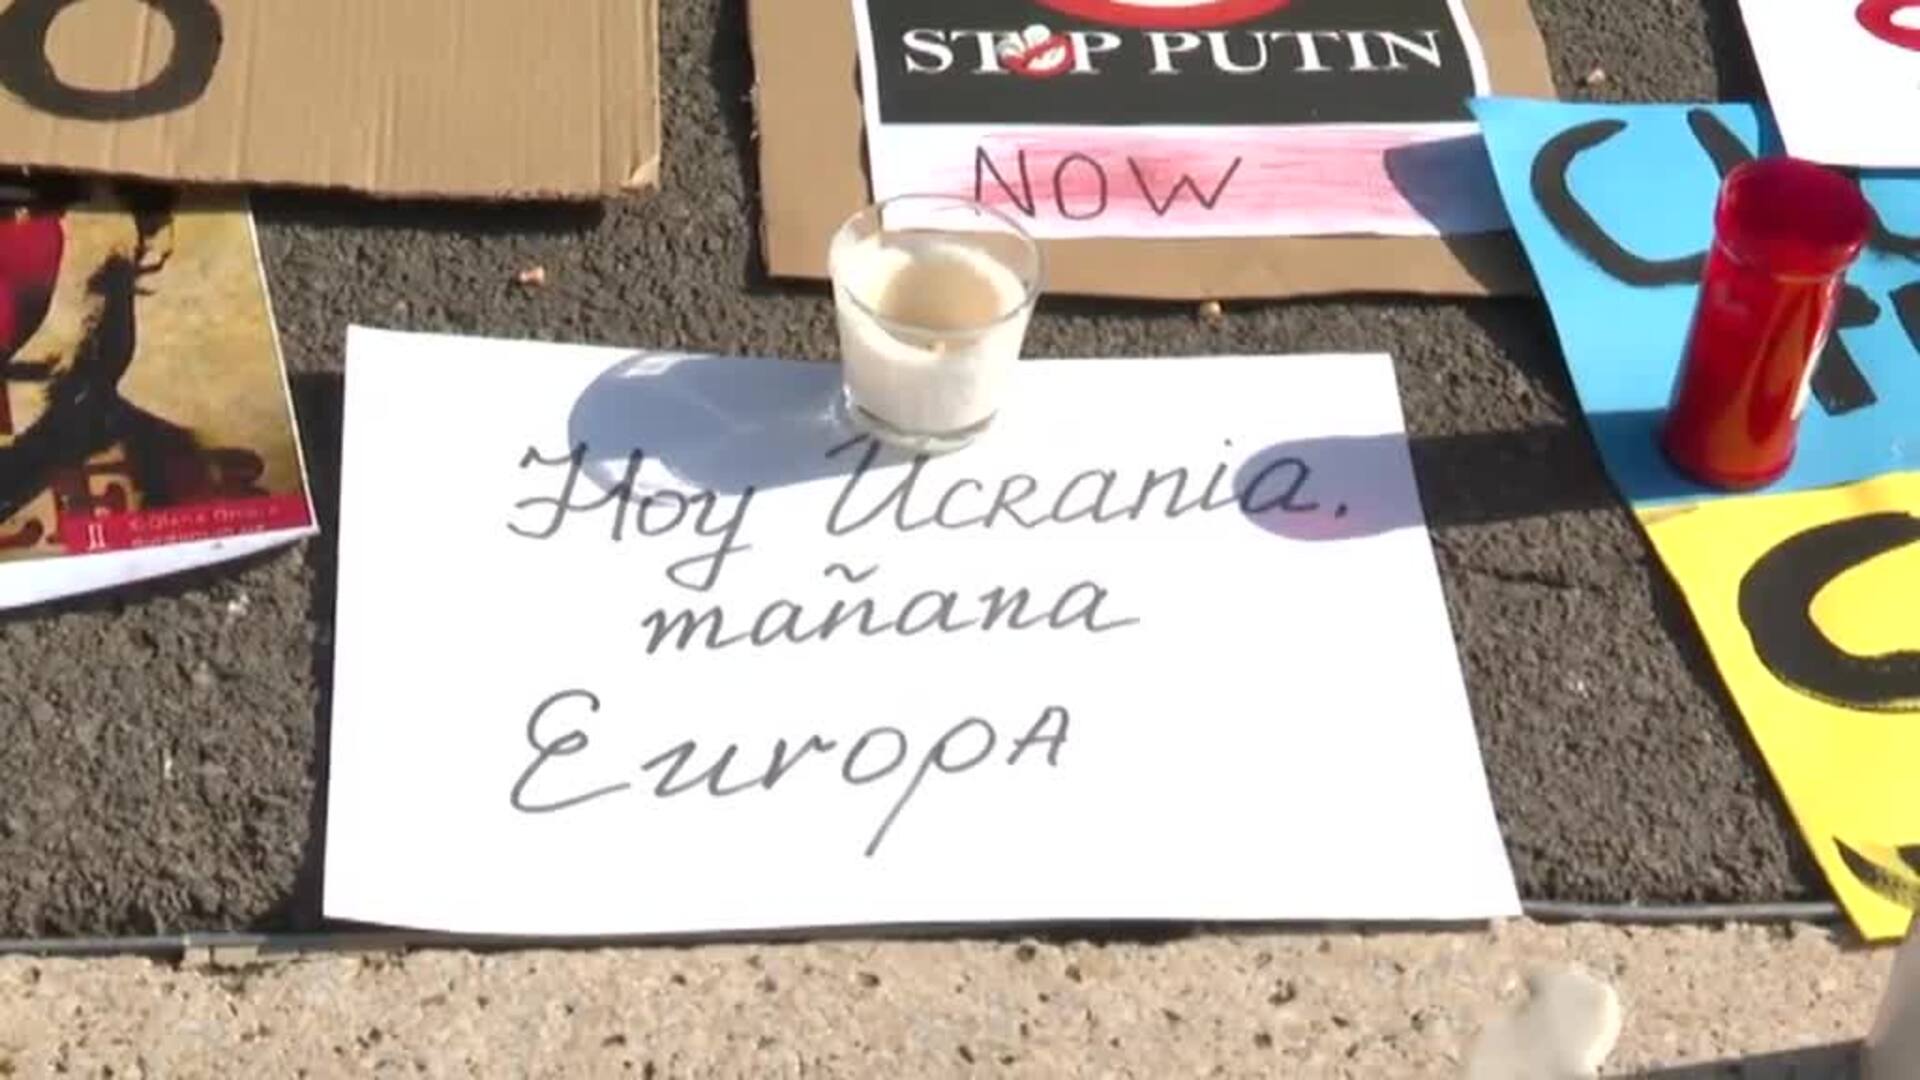 STOP PUTIN
NOW
Hoy Ucrania.
mañana
EuropA